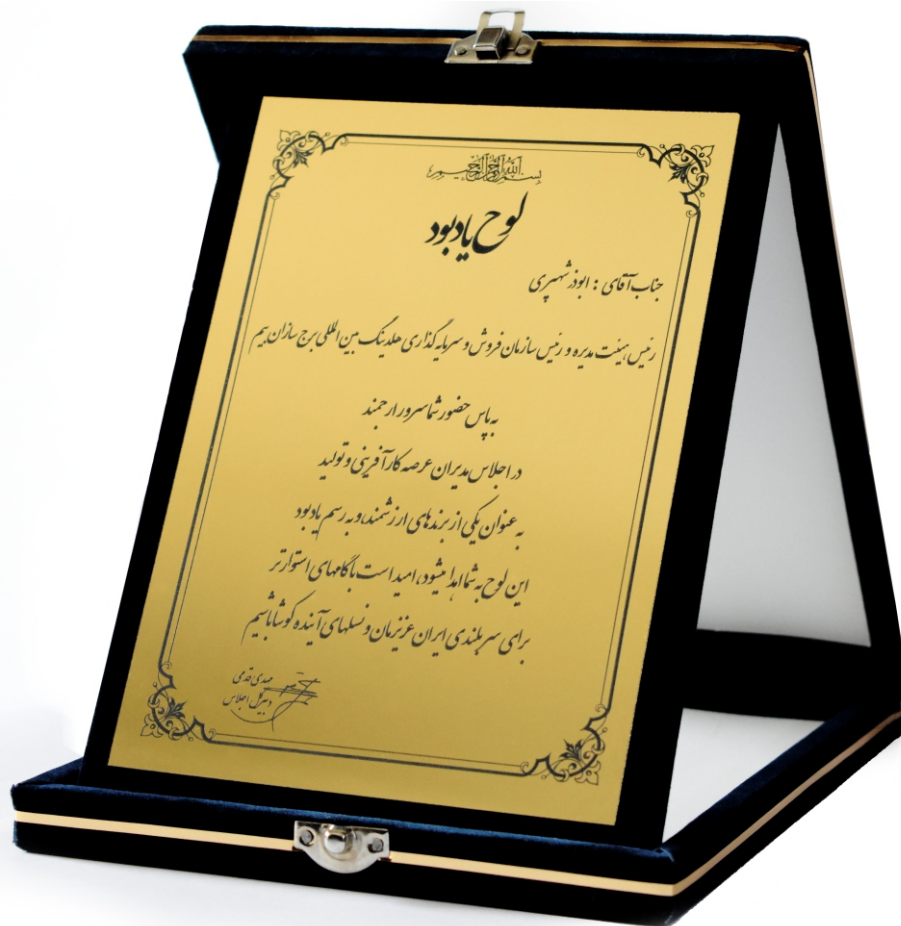 بسم الله الرحمن الرحیم
لوح یادبود
جناب آقای : ابوذر شهپری
رئیس هیئت مدیره و رئیس سازمان فروش و سرمایه گذاری هلدینگ بین المللی برج سازان بیم
به پاس حضور شما سرور ارجمند
در اجلاس مدیران عرصه کارآفرینی و تولید
به عنوان یکی از برندهای ارزشمند، و به رسم یادبود
این لوح به شما اهدا میشود، امید است با گامهای استوارتر
برای سربلندی ایران عزیزمان و نسلهای آینده کوشا باشیم
مهدی قدمی
دبیرکل اجلاس